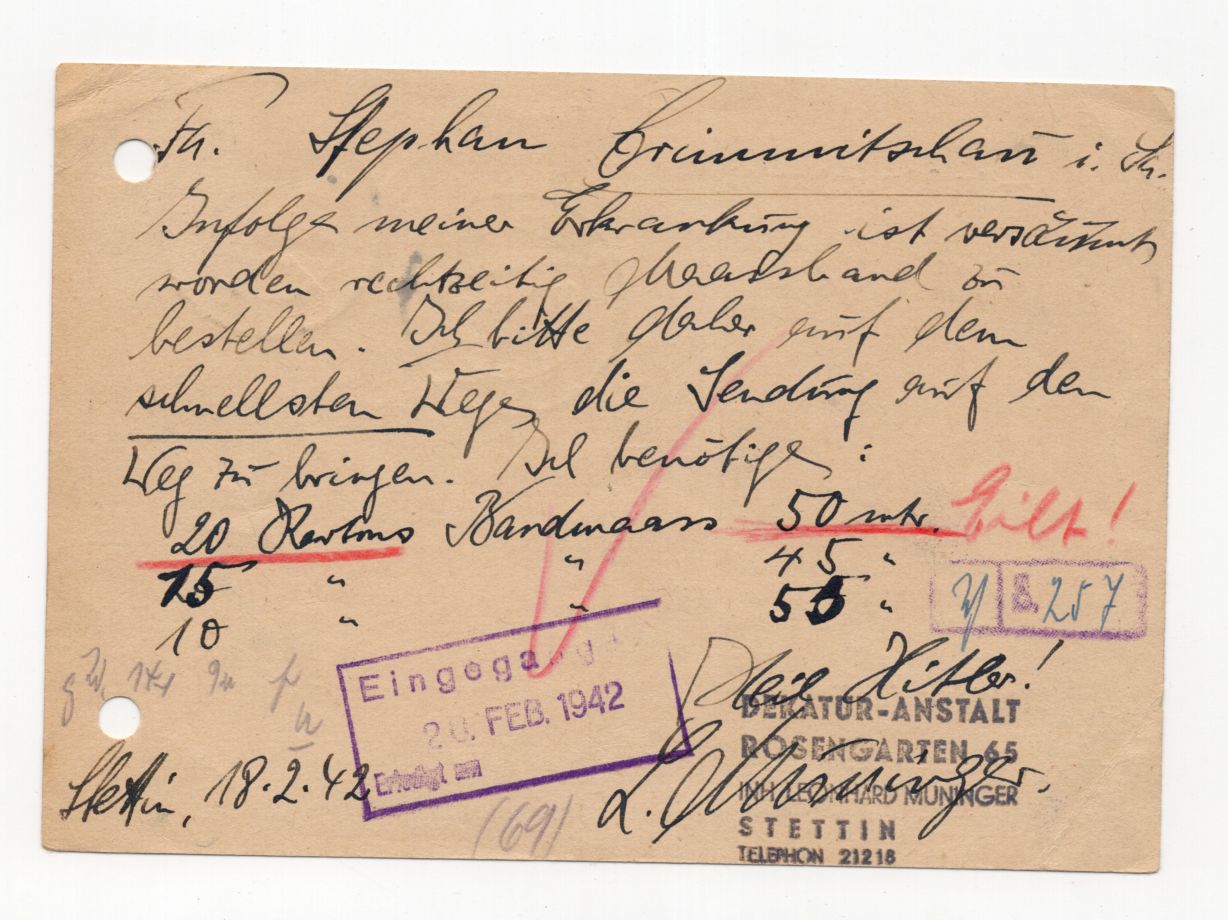 Fa. Stephan Crimmitschau i. Sa.
Infolge meiner Erkrankung ist versäumt
worden rechtzeitig Maassband zu
bestellen. Ich bitte daher auf dem
schnellsten Wege die Sendung auf den
Weg zu bringen. Ich benötige:
20 Kartons Bandmaass 50 mtr. Eilt!
15 " " 45 "
10 " " 55 "
257
Eingega
20. FEB. 1942
Erledigt am
Heil Hitler!
DEKATUR-ANSTALT
ROSENGARTEN 65
INH. LEONHARD MÜNINGER
STETTIN
TELEPHON 21218
L. Müninger.
Stettin, 18.2.42
(69)